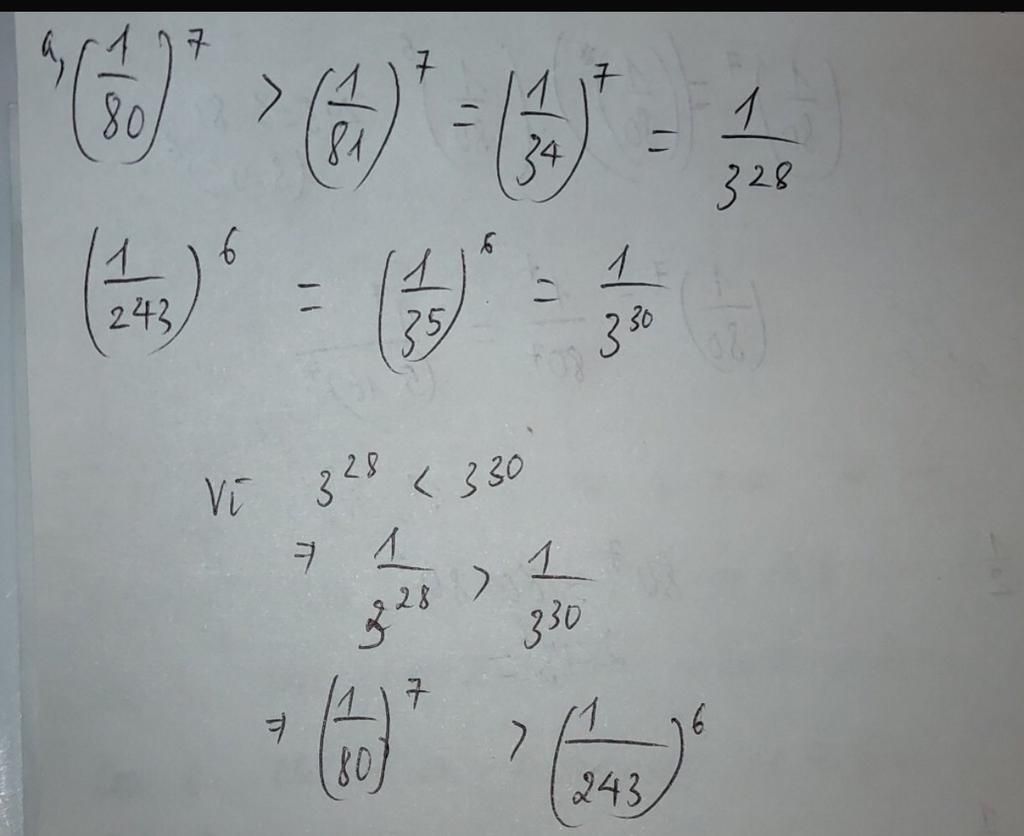 a, (1/80)^7 > (1/81)^7 = (1/3^4)^7 = 1/3^28
(1/243)^6 = (1/3^5)^6 = 1/3^30
Vì 3^28 < 3^30
⇒ 1/3^28 > 1/3^30
⇒ (1/80)^7 > (1/243)^6